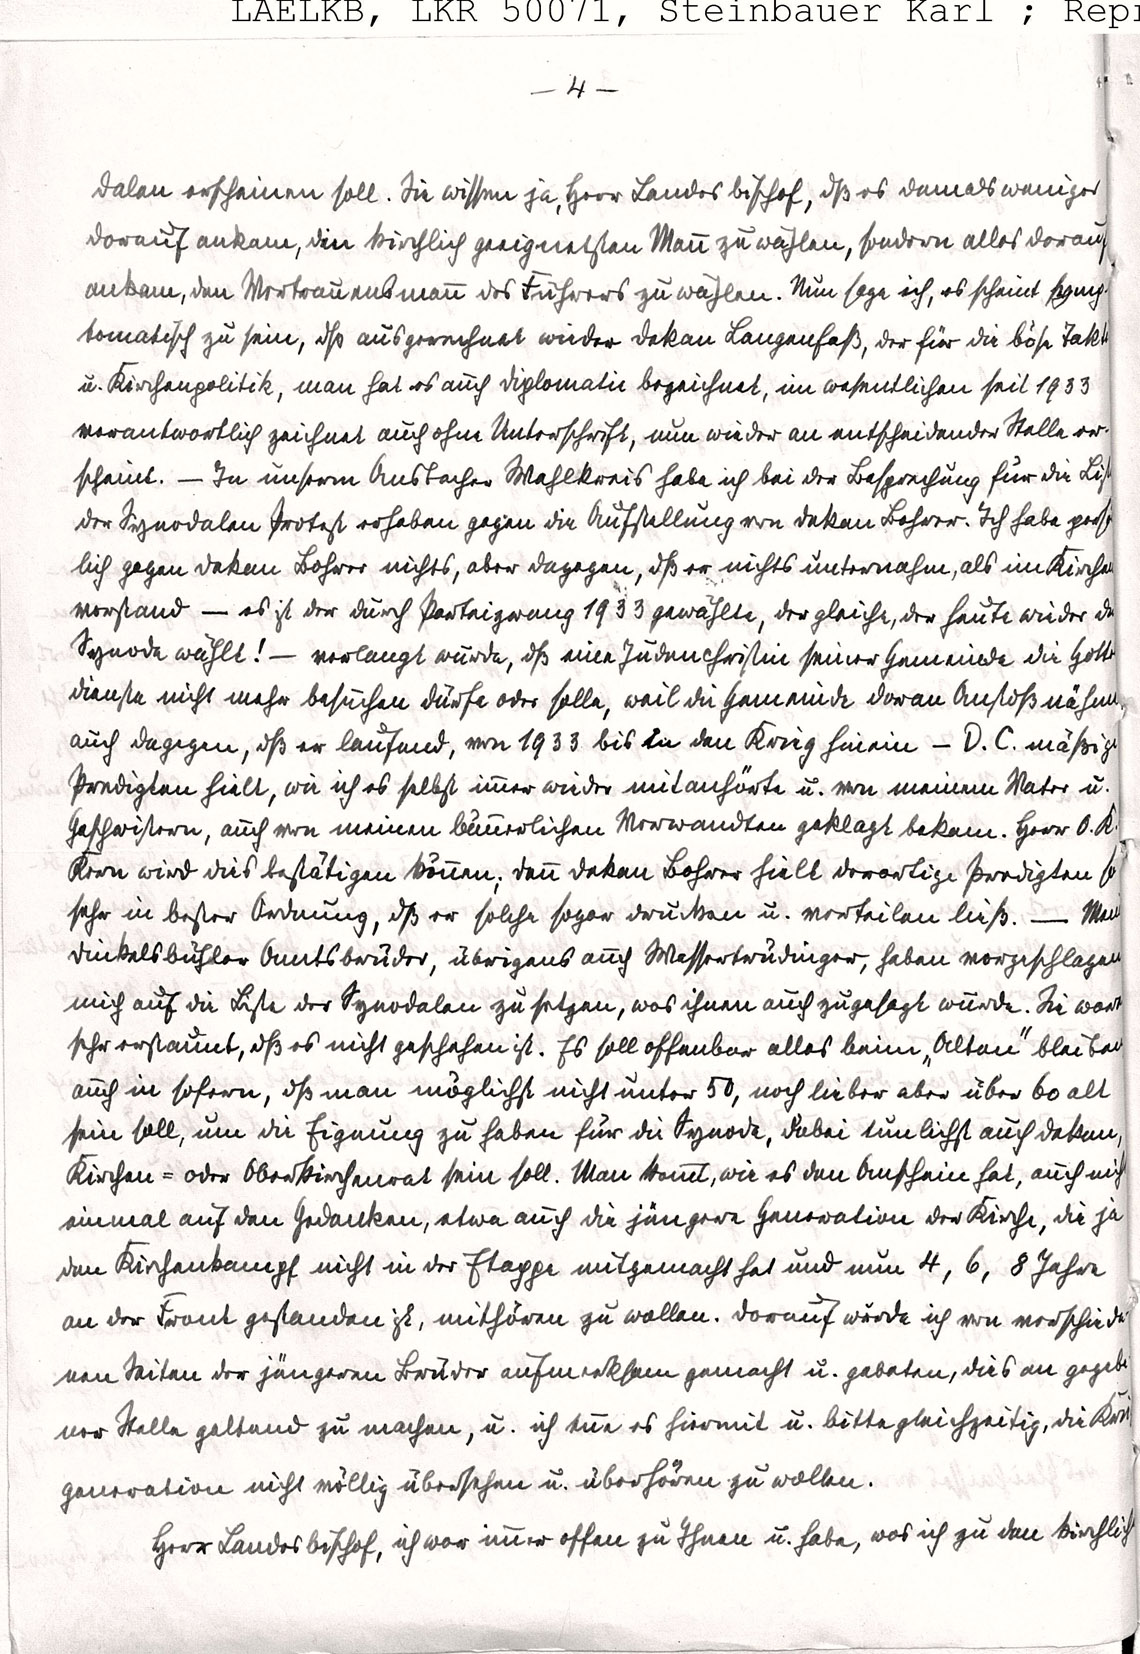 LAELKB, LKR 50071, Steinbauer Karl ; Repr
— 4 —
dalen erscheinen soll. Sie wissen ja, Herr Landesbischof, dß es damals weniger
darauf ankam, den kirchlich geeignetsten Mañ zu wählen, sondern alles darauf
ankam, den Vertrauensmañ des Führers zu wählen. Nun sage ich, es scheint symp-
tomatisch zu sein, dß ausgerechnet wieder Dekan Langenfaß, der für die böse Takt
u. Kirchenpolitik, man hat es auch Diplomatie bezeichnet, im wesentlichen seit 1933
verantwortlich zeichnet auch ohne Unterschrift, nun wieder an entscheidender Stelle er-
scheint. — In unserm Ansbacher Wahlkreis habe ich bei der Besprechung für die Lis
der Synodalen Protest erhoben gegen die Aufstellung von Dekan Bohrer. Ich habe persö
lich gegen Dekan Bohrer nichts, aber dagegen, dß er nichts unternahm, als im Kirchen
vorstand — es ist der durch Parteizwang 1933 gewählte, der gleiche, der heute wieder die
Synode wählt! — verlangt wurde, dß eine Judenchristin seiner Gemeinde die Gottes
dienste nicht mehr besuchen dürfe oder solle, weil die Gemeinde daran Anstoß nähme,
auch dagegen, dß er laufend, von 1933 bis in den Krieg hinein — D.C. mäßige
Predigten hielt, wie ich es selbst im̄er wieder mitanhörte u. von meinem Vater u.
Geschwistern, auch von meinen bäuerlichen Verwandten geklagt bekam. Herr O.K.
Kern wird dies bestätigen köñen; deñ Dekan Bohrer hielt derartige Predigten so
sehr in bester Ordnung, dß er solche sogar drucken u. verteilen ließ. — Mein
Dinkelsbühler Amtsbrüder, übrigens auch Wassertrüdinger, haben vorgeschlagen
mich auf die Liste der Synodalen zu setzen, was ihnen auch zugesagt wurde. Sie ware
sehr erstaunt, dß es nicht geschehen ist. Es soll offenbar alles beim „Alten“ bleiben
auch in sofern, dß man möglichst nicht unter 50, noch lieber aber über 60 alt
sein soll, um die Eignung zu haben für die Synode, dabei tunlichst auch Dekan,
Kirchen= oder Oberkirchenrat sein soll. Man kom̄t, wie es den Anschein hat, auch nich
einmal auf den Gedanken, etwa auch die jüngere Generation der Kirche, die ja
den Kirchenkampf nicht in der Etappe mitgemacht hat und nun 4, 6, 8 Jahre
an der Front gestanden ist, mithören zu wollen. Darauf wurde ich von verschiede
nen Seiten der jüngeren Brüder aufmerksam gemacht u. gebeten, dies an gegebe
ner Stelle geltend zu machen, u. ich tue es hiermit u. bitte gleichzeitig, die Kri
generation nicht völlig übersehen u. überhören zu wollen.
Herr Landesbischof, ich war im̄er offen zu Ihnen u. habe, was ich zu den kirchlich